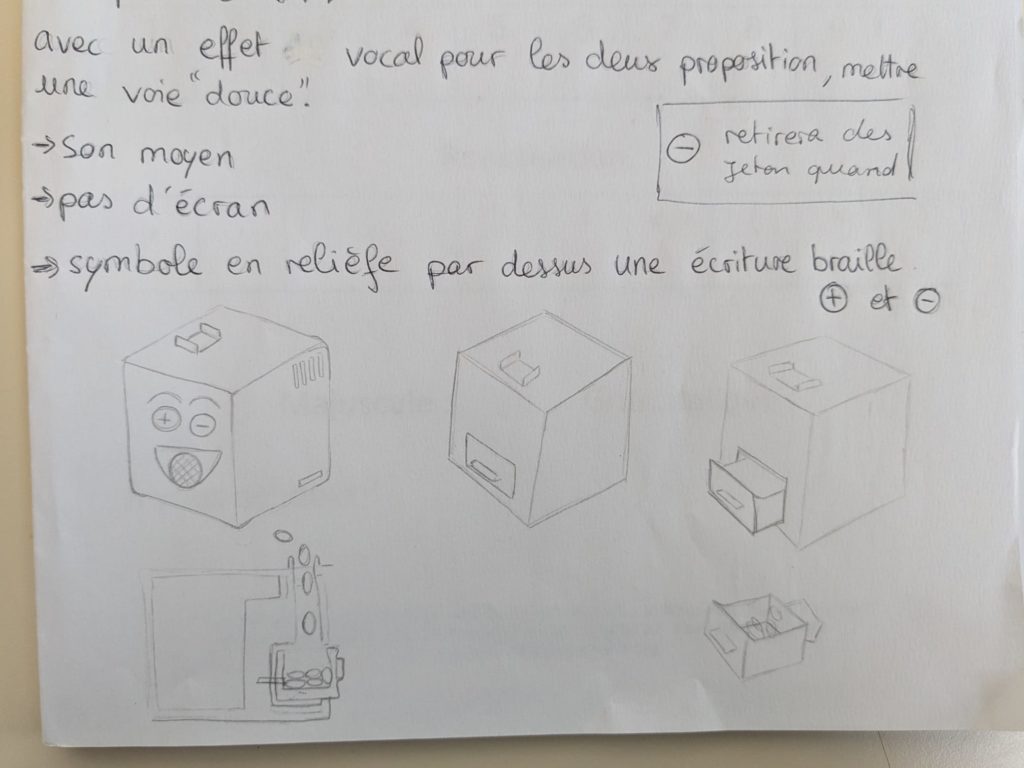 avec un effet vocal pour les deux proposition, mettre
une voie "douce".
→ Son moyen
→ pas d'écran
⊖ retirera des
Jeton quand
→ symbole en relièfe par dessus une écriture braille.
⊕ et ⊖
+ -